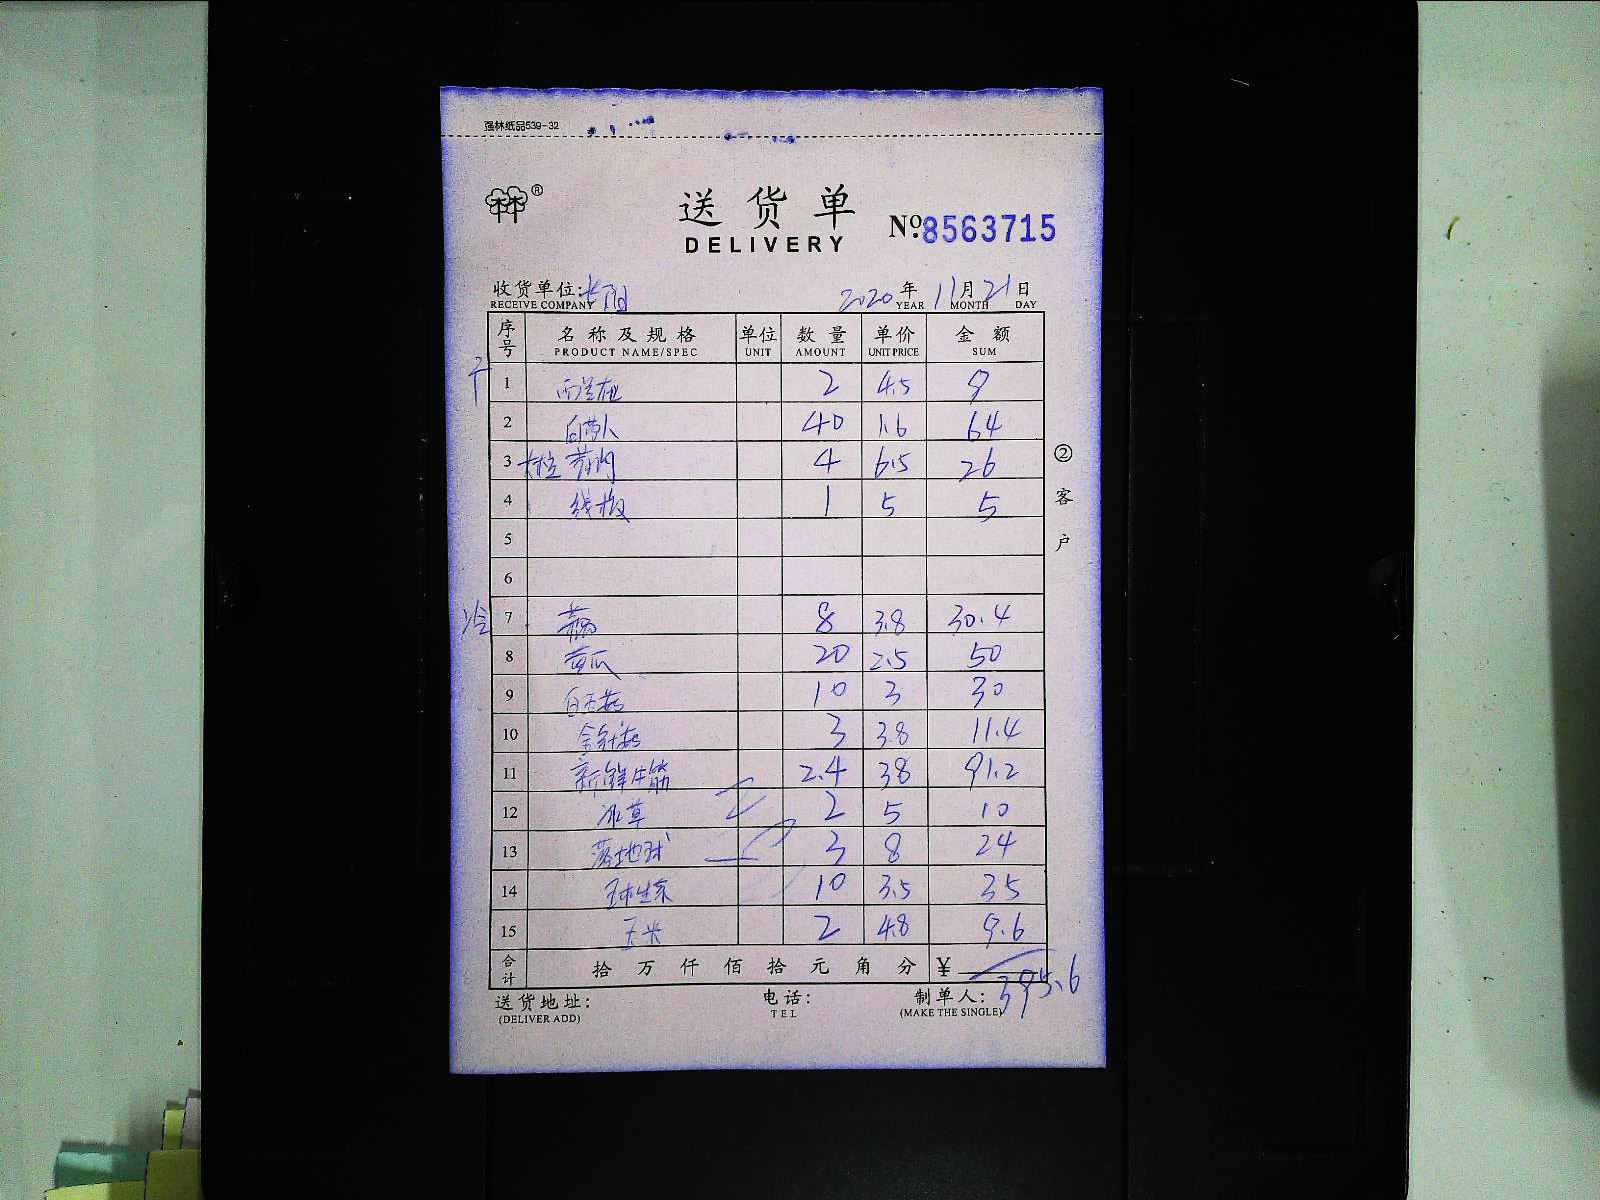 强林纸品539-32
林®
送货单
DELIVERY
No:8563715
收货单位:长阳 2020年11月21日
RECEIVE COMPANY YEAR MONTH DAY
序号 名称及规格 单位 数量 单价 金额
PRODUCT NAME/SPEC UNIT AMOUNT UNIT PRICE SUM
干
1 2 4.5 9
2 白萝卜 40 1.6 64
3 4 6.5 26
4 线椒 1 5 5
5
6
冷
7 8 3.8 30.4
8 黄瓜 20 2.5 50
9 白玉菇 10 3 30
10 金针菇 3 3.8 11.4
11 新鲜牛筋 2.4 38 91.2
12 冰草 2 5 10
13 3 8 24
14 球生菜 10 3.5 35
15 玉米 2 4.8 9.6
合计 拾万仟佰拾元角分 ¥ 395.6
送货地址: 电话: 制单人:
(DELIVER ADD) TEL (MAKE THE SINGLE)
②客户